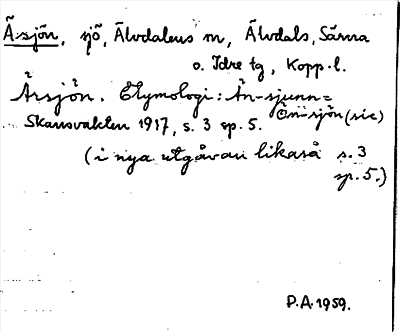 Åsjön, sjö, Älvdalens sn, Älvdals, Särna
o. Idre tg, Kopp. l.
Åsjön. Etymologi: Ån-sjunn=
Ön-sjön (sic)
Skansvakten 1917, s. 3 sp. 5.
(i nya utgåvan likaså s. 3
sp. 5.)
P.A. 1959.